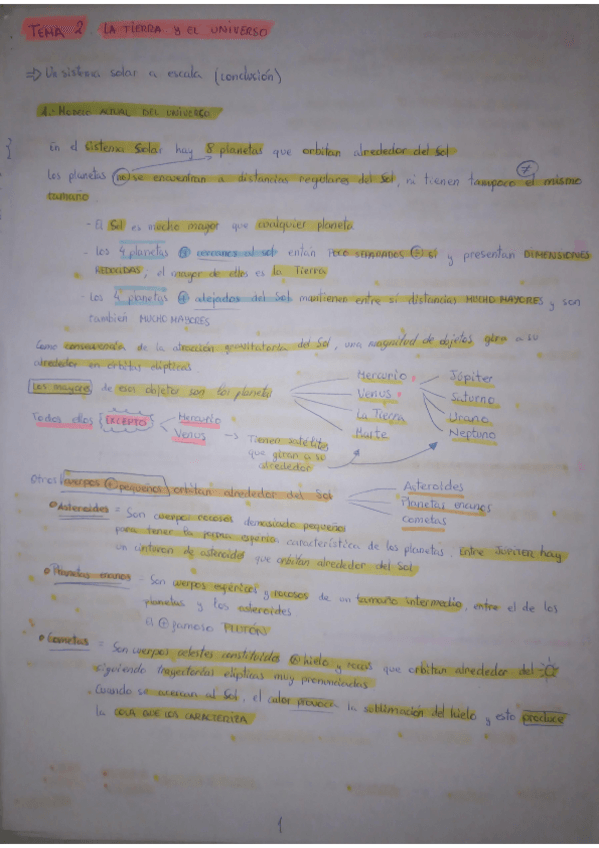 TEMA 2 LA TIERRA Y EL UNIVERSO
⇒ Un sistema solar a escala (conclusión)
1.- MODELO ACTUAL DEL UNIVERSO
En el sistema Solar hay 8 planetas que orbitan alrededor del Sol
Los planetas no se encuentran a distancias regulares del Sol, ni tienen tampoco el mismo
tamaño.
- El Sol es mucho mayor que cualquier planeta
- Los 4 planetas + cercanos al sol están POCO SEPARADOS de sí y presentan DIMENSIONES
REDUCIDAS, el mayor de ellos es la Tierra
- Los 4 planetas + alejados del Sol mantienen entre sí distancias MUCHO MAYORES y son
también MUCHO MAYORES
Como consecuencia de la atracción gravitatoria del Sol, una magnitud de objetos gira a su
alrededor en órbitas elípticas.
Los mayores de esos objetos son los planetas
Mercurio
Venus
La Tierra
Marte
Júpiter
Saturno
Urano
Neptuno
Todos ellos EXCEPTO
Mercurio
Venus
→ Tienen satélites
que giran a su
alrededor
Otros cuerpos + pequeños orbitan alrededor del Sol
Asteroides
Planetas enanos
cometas
• Asteroides = Son cuerpos rocosos demasiado pequeños
para tener la forma esférica característica de los planetas. Entre JÚPITER hay
un cinturón de asteroides que orbitan alrededor del Sol
• Planetas enanos = Son cuerpos esféricos y rocosos de un tamaño intermedio, entre el de los
planetas y los asteroides
El + famoso PLUTÓN
• Cometas = Son cuerpos celestes constituidos de hielo y rocas que orbitan alrededor del
siguiendo trayectorias elípticas muy pronunciadas
. Cuando se acercan al Sol, el calor provoca la sublimación del hielo y esto produce
la COLA QUE LOS CARACTERIZA
1